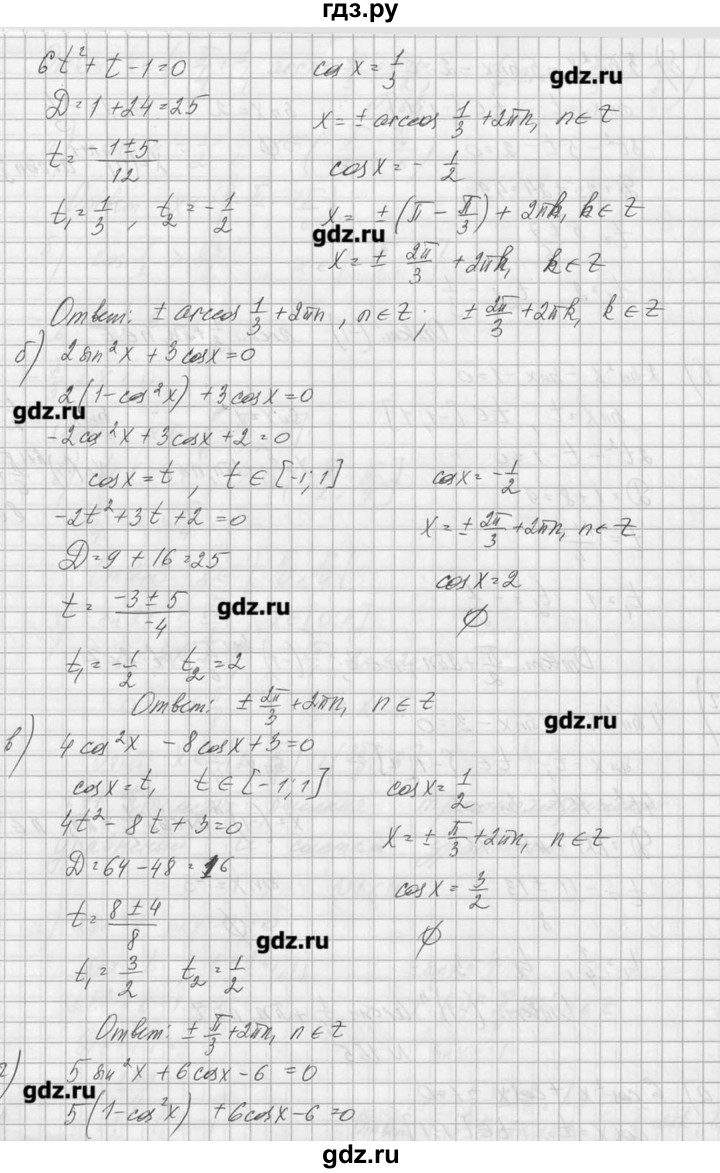 гдз.ру
6t² + t − 1 = 0
D = 1 + 24 = 25
t = (−1 ± 5)/12
t₁ = 1/3, t₂ = −1/2
cos x = 1/3
gdz.ru
x = ± arccos 1/3 + 2πn, n ∈ Z
cos x = − 1/2
x = ± (π − π/3) + 2πk, k ∈ Z
gdz.ru
x = ± 2π/3 + 2πk, k ∈ Z
Ответ: ± arccos 1/3 + 2πn, n ∈ Z; ± 2π/3 + 2πk, k ∈ Z
б) 2 sin²x + 3 cosx = 0
2(1 − cos²x) + 3cosx = 0
gdz.ru
−2cos²x + 3cosx + 2 = 0
cosx = t, t ∈ [−1; 1]
−2t² + 3t + 2 = 0
D = 9 + 16 = 25
t = (−3 ± 5)/−4
gdz.ru
t₁ = −1/2 t₂ = 2
cosx = −1/2
x = ± 2π/3 + 2πn, n ∈ Z
cosx = 2
∅
Ответ: ± 2π/3 + 2πn, n ∈ Z
gdz.ru
в) 4 cos²x − 8cosx + 3 = 0
cosx = t, t ∈ [−1; 1]
4t² − 8t + 3 = 0
D = 64 − 48 = 16
t = (8 ± 4)/8
gdz.ru
t₁ = 3/2 t₂ = 1/2
cosx = 1/2
x = ± π/3 + 2πn, n ∈ Z
cosx = 3/2
∅
Ответ: ± π/3 + 2πn, n ∈ Z
г) 5 sin²x + 6cosx − 6 = 0
gdz.ru
5(1 − cos²x) + 6cosx − 6 = 0
gdz.ru